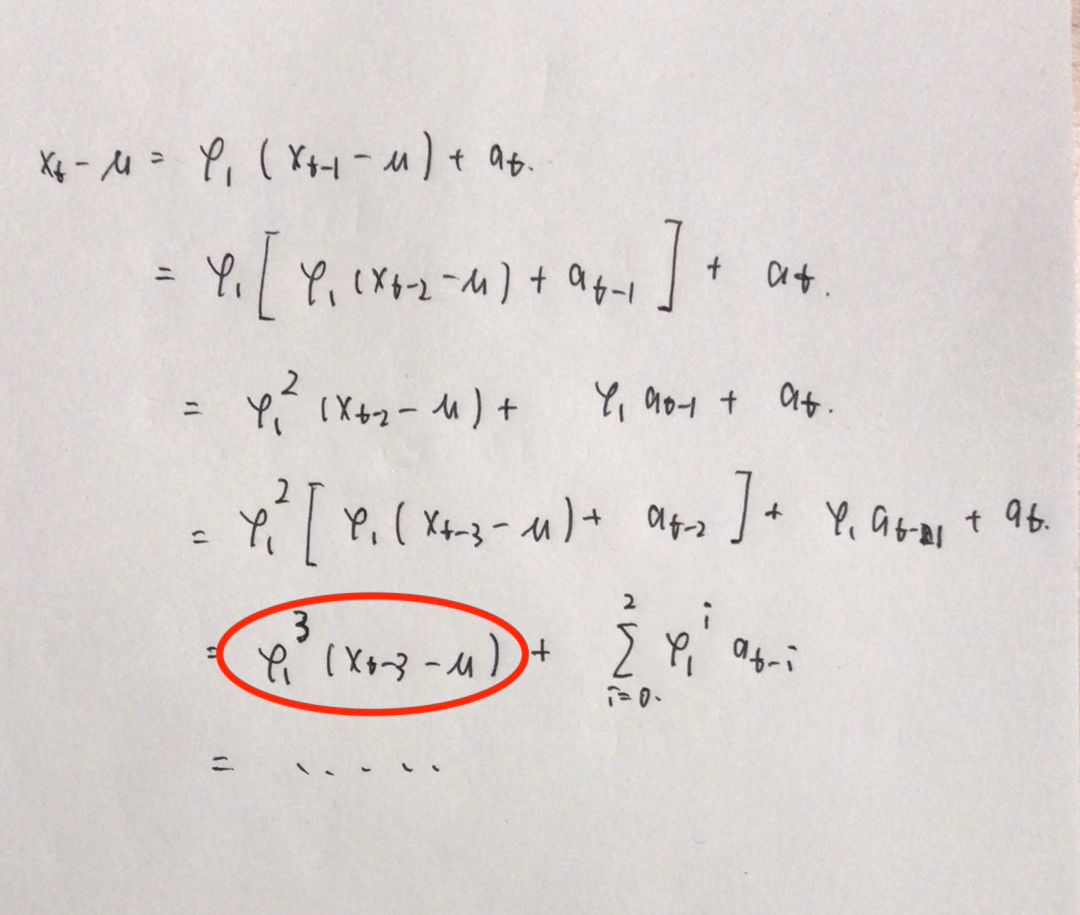 x_t - μ = φ_1 (x_{t-1} - μ) + a_t.
= φ_1 [ φ_1 (x_{t-2} - μ) + a_{t-1} ] + a_t.
= φ_1^2 (x_{t-2} - μ) + φ_1 a_{t-1} + a_t.
= φ_1^2 [ φ_1 (x_{t-3} - μ) + a_{t-2} ] + φ_1 a_{t-1} + a_t.
= φ_1^3 (x_{t-3} - μ) + ∑_{i=0.}^{2} φ_1^i a_{t-i}
= .....